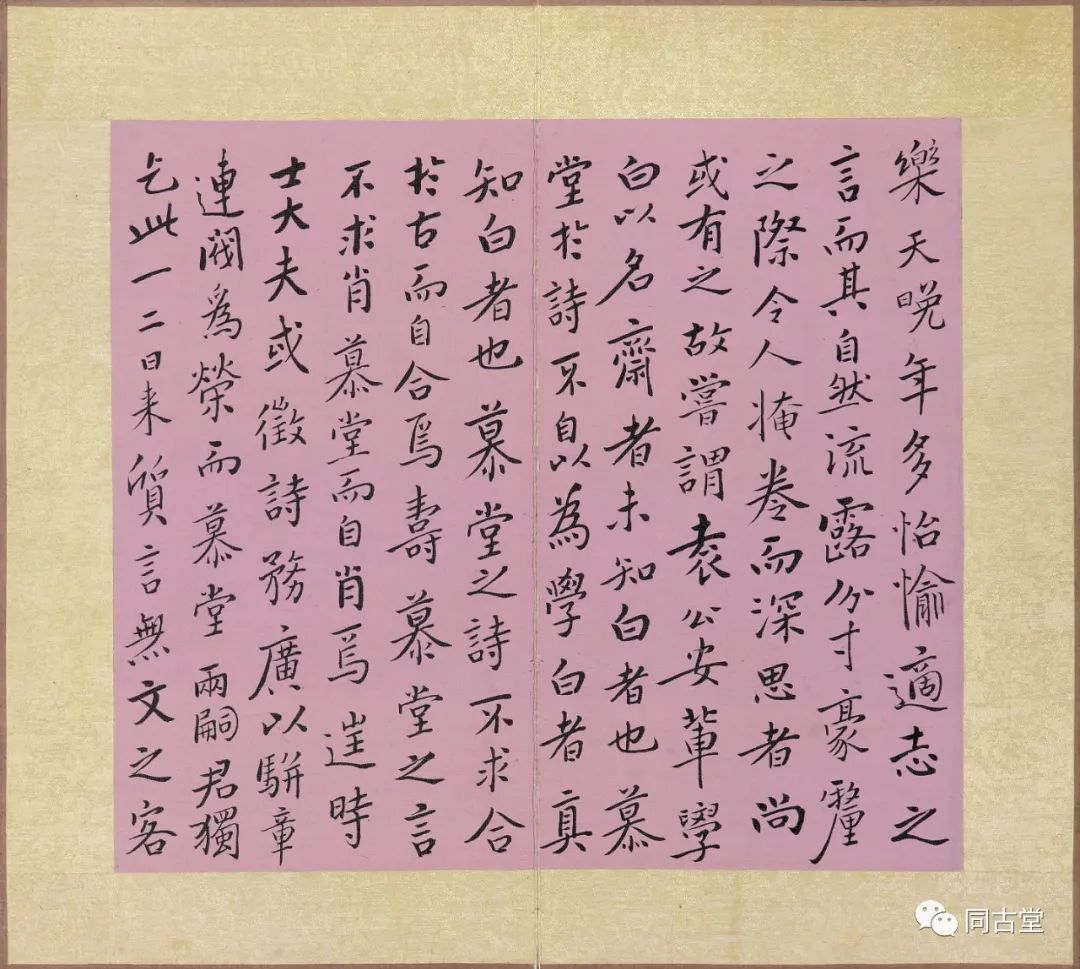 樂天晚年多怡愉適志之
言而其自然流露分寸豪釐
之際令人掩卷而深思者尚
或有之故嘗謂袁公安輩學
白以名齋者未知白者也慕
堂於詩不自以為學白者真
知白者也慕堂之詩不求合
於古而自合焉壽慕堂之言
不求肖慕堂而自肖焉遑時
士大夫或徵詩務廣以駢章
連閥為榮而慕堂兩嗣君獨
乞此一二日来質言無文之客
同古堂